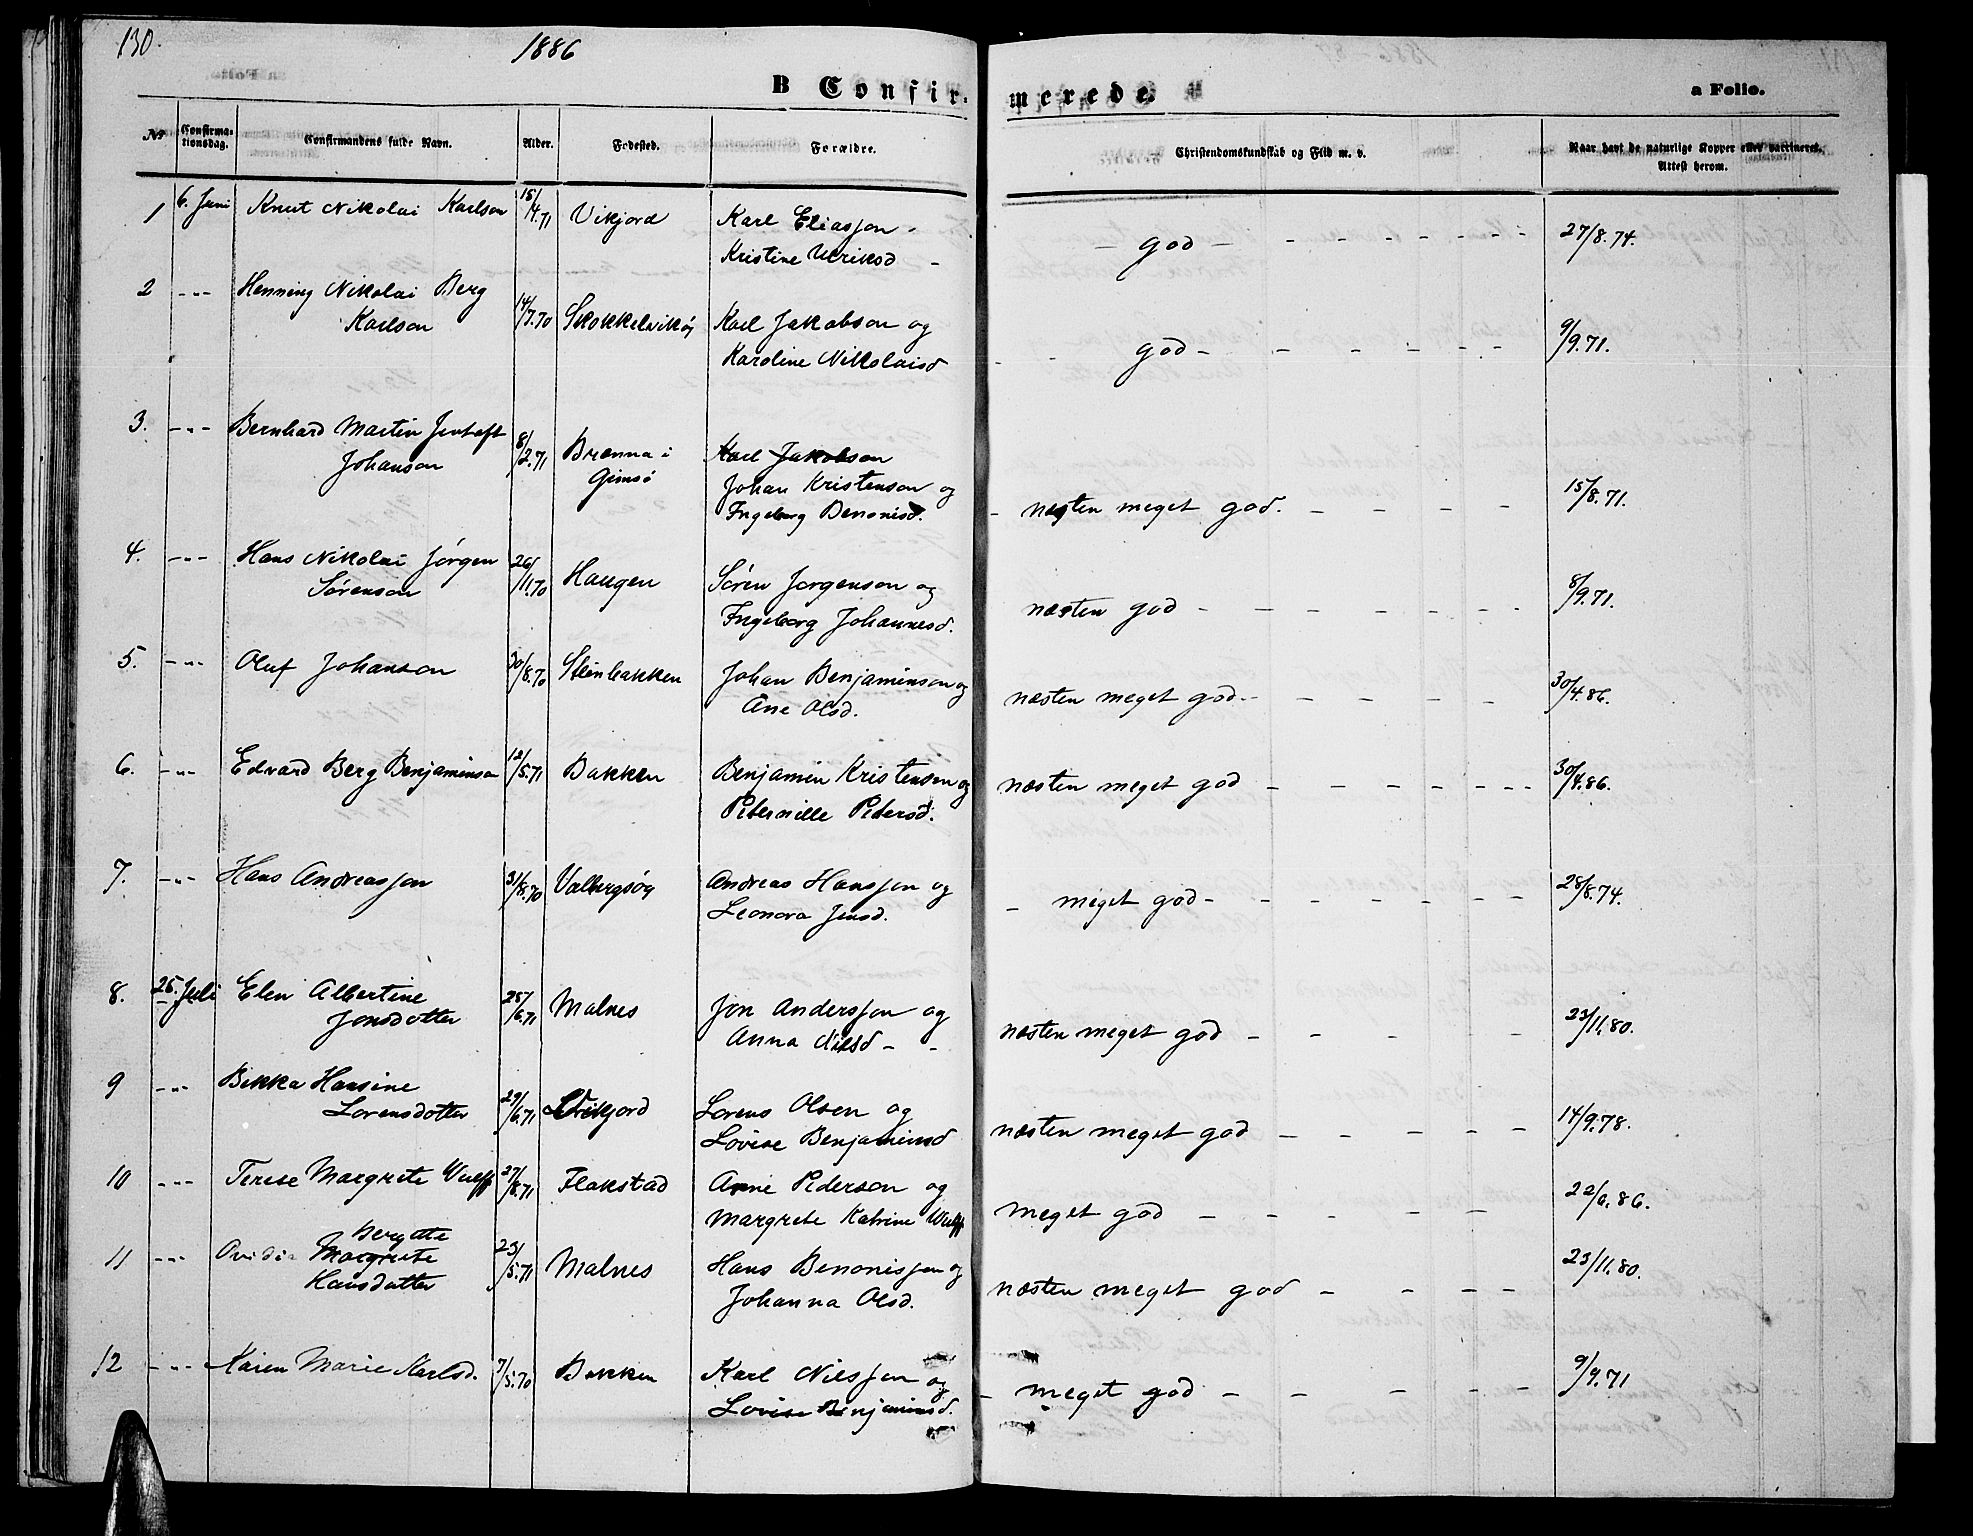 130.
1886
B Confirmerede. a Folio.
No Confirmationsdag. Confirmandens fulde Navn. Alder. Fødested. Forældre. Christendomskundskab og Flid m. v. Naar havt de naturlige Kopper eller vaccineret. Attest herom.
1 6. Juni Knut Nikolai Karlson 15/4.71 Vikjord Karl Eliasson -
Kristine Ulriksd - - god - - - - - - - 27/8.74.
2 -"- Henning Nikolai Berg
Karlson 14/7.70 Karl Jakobson og
Karoline Nikolaisd - - god - - - - - - 9/9.71.
3. -"- Bernhard Martin Jentoft
Johanson 8/2.71 Brenna i
Gimsø Karl Jakobson
Johan Kristenson og
Ingeborg Benonisd. - næsten meget god. - - - - 15/8.71.
4. -"- Hans Nikolai Jørgen
Sørenson 26/11.70 Haugen Søren Jørgenson og
Ingeborg Johannesd. næsten god - - - - - - 8/9.71.
5. -"- Oluf Johanson 30/8.70 Steinbakken Johan Benjaminson og
Ane Olsd. næsten meget god - - - - - 30/4.86.
6. -"- Edvard Berg Benjaminson 12/5.71 Bakken Benjamin Kristenson og
Peternille Pedersd. næsten meget god - - - - - - - 30/4.86.
7. -"- Hans Andreassen 31/8.70 Andreas Hanssen og
Leonora Jensd. - meget god - - - - - - - 28/8.74.
8. 25. Juli Elen Albertine
Jonsdotter 25/6.71 Malnes Jon Anderssen og
Anna Nilsd - - næsten meget god - - - - 23/11.80.
9 -"- Bekka Hansine
Lorensdotter 29/6.71 Lorens Olsen og
Lovise Benjaminsd næsten meget god - - - - - 14/9.78.
10 -"- Terese Margrete Wulff 27/8.71 Flakstad Arne Pederson og
Margrete Katrine Wulff meget god - - - - - 22/6.86.
11 -"- Ovidia Bergitte
Margrete
Hansdatter 23/5.71 Malnes Hans Benonissen og
Johanna Olsd. næsten meget god - - - - 23/11.80.
12 -"- Karen Marie Karlsd. 7/5.70 Bakken Karl Nilssen og
Lovise Benjaminsd. - meget god - - - - - - 9/9.71